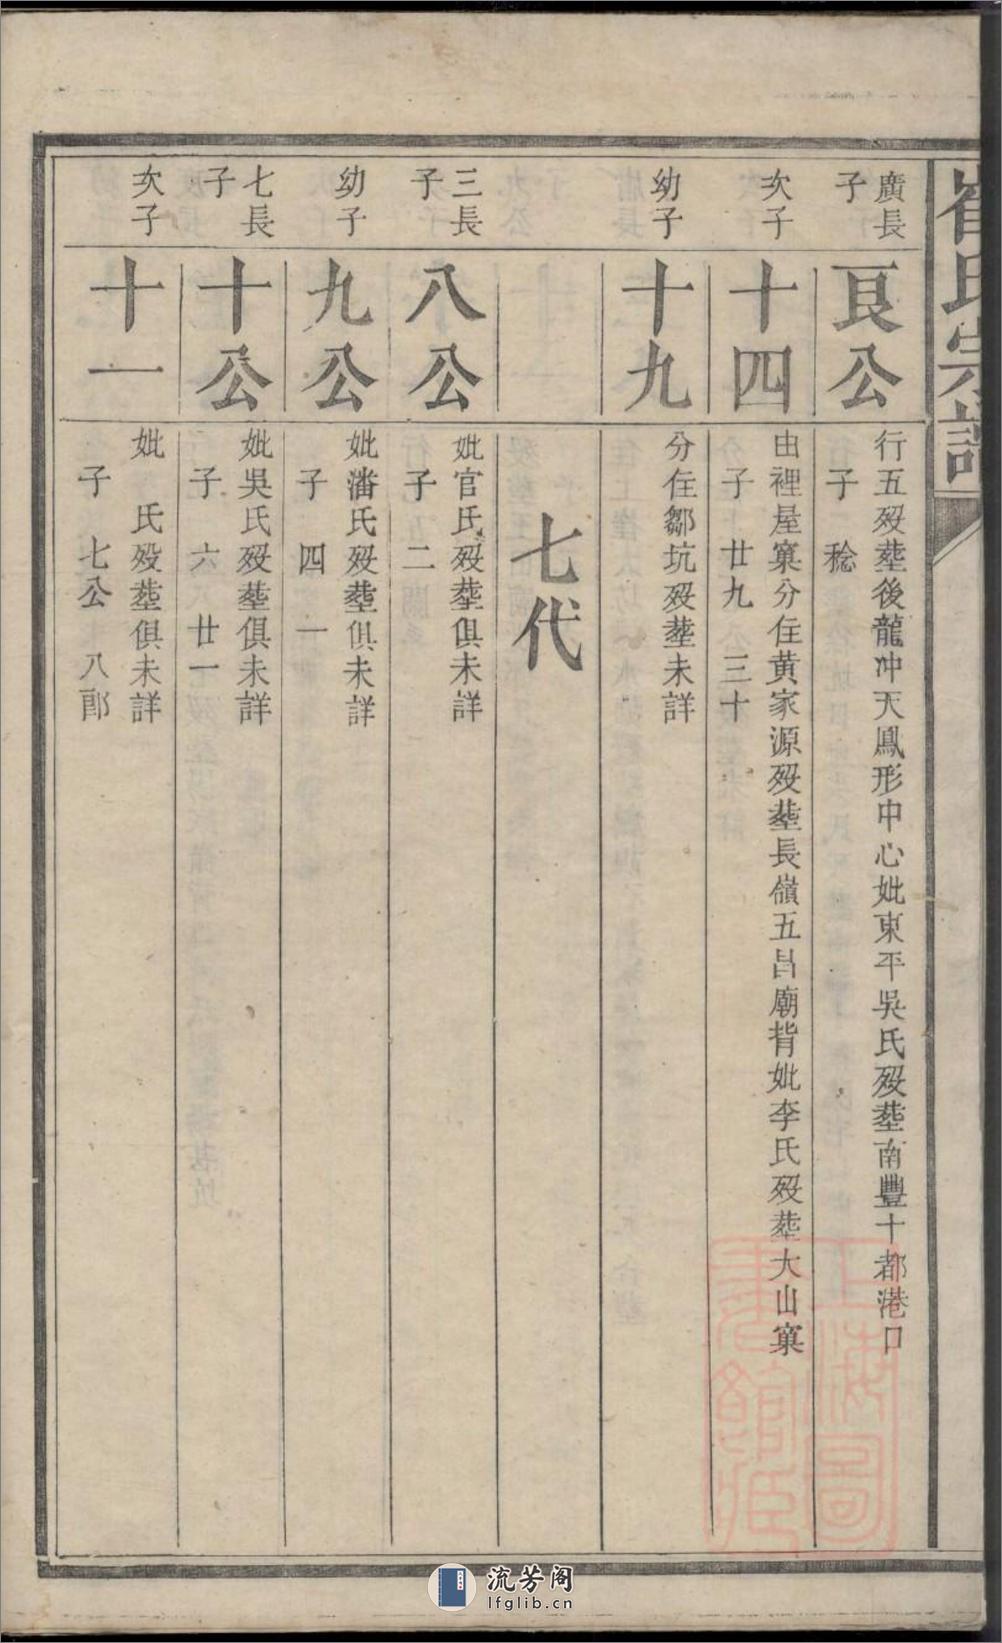 崔氏宗譜
廣長子
艮公
行五歿塟後龍冲天鳳形中心妣東平吳氏歿塟南豐十都港口
子 稔
次子
十四
由裡屋窠分住黃家源歿塟長嶺五昌廟背妣李氏歿塟大山窠
子 廿九 三十
幼子
十九
分住鄒坑歿塟未詳
七代
三長子
八公
妣官氏歿塟俱未詳
子 二
幼子
九公
妣潘氏歿塟俱未詳
子 四 一
七長子
十公
妣吳氏歿塟俱未詳
子 六 廿一
次子
十一
妣 氏歿塟俱未詳
子 七公 八郎
上海圖書館藏
流芳阁
lfglib.cn